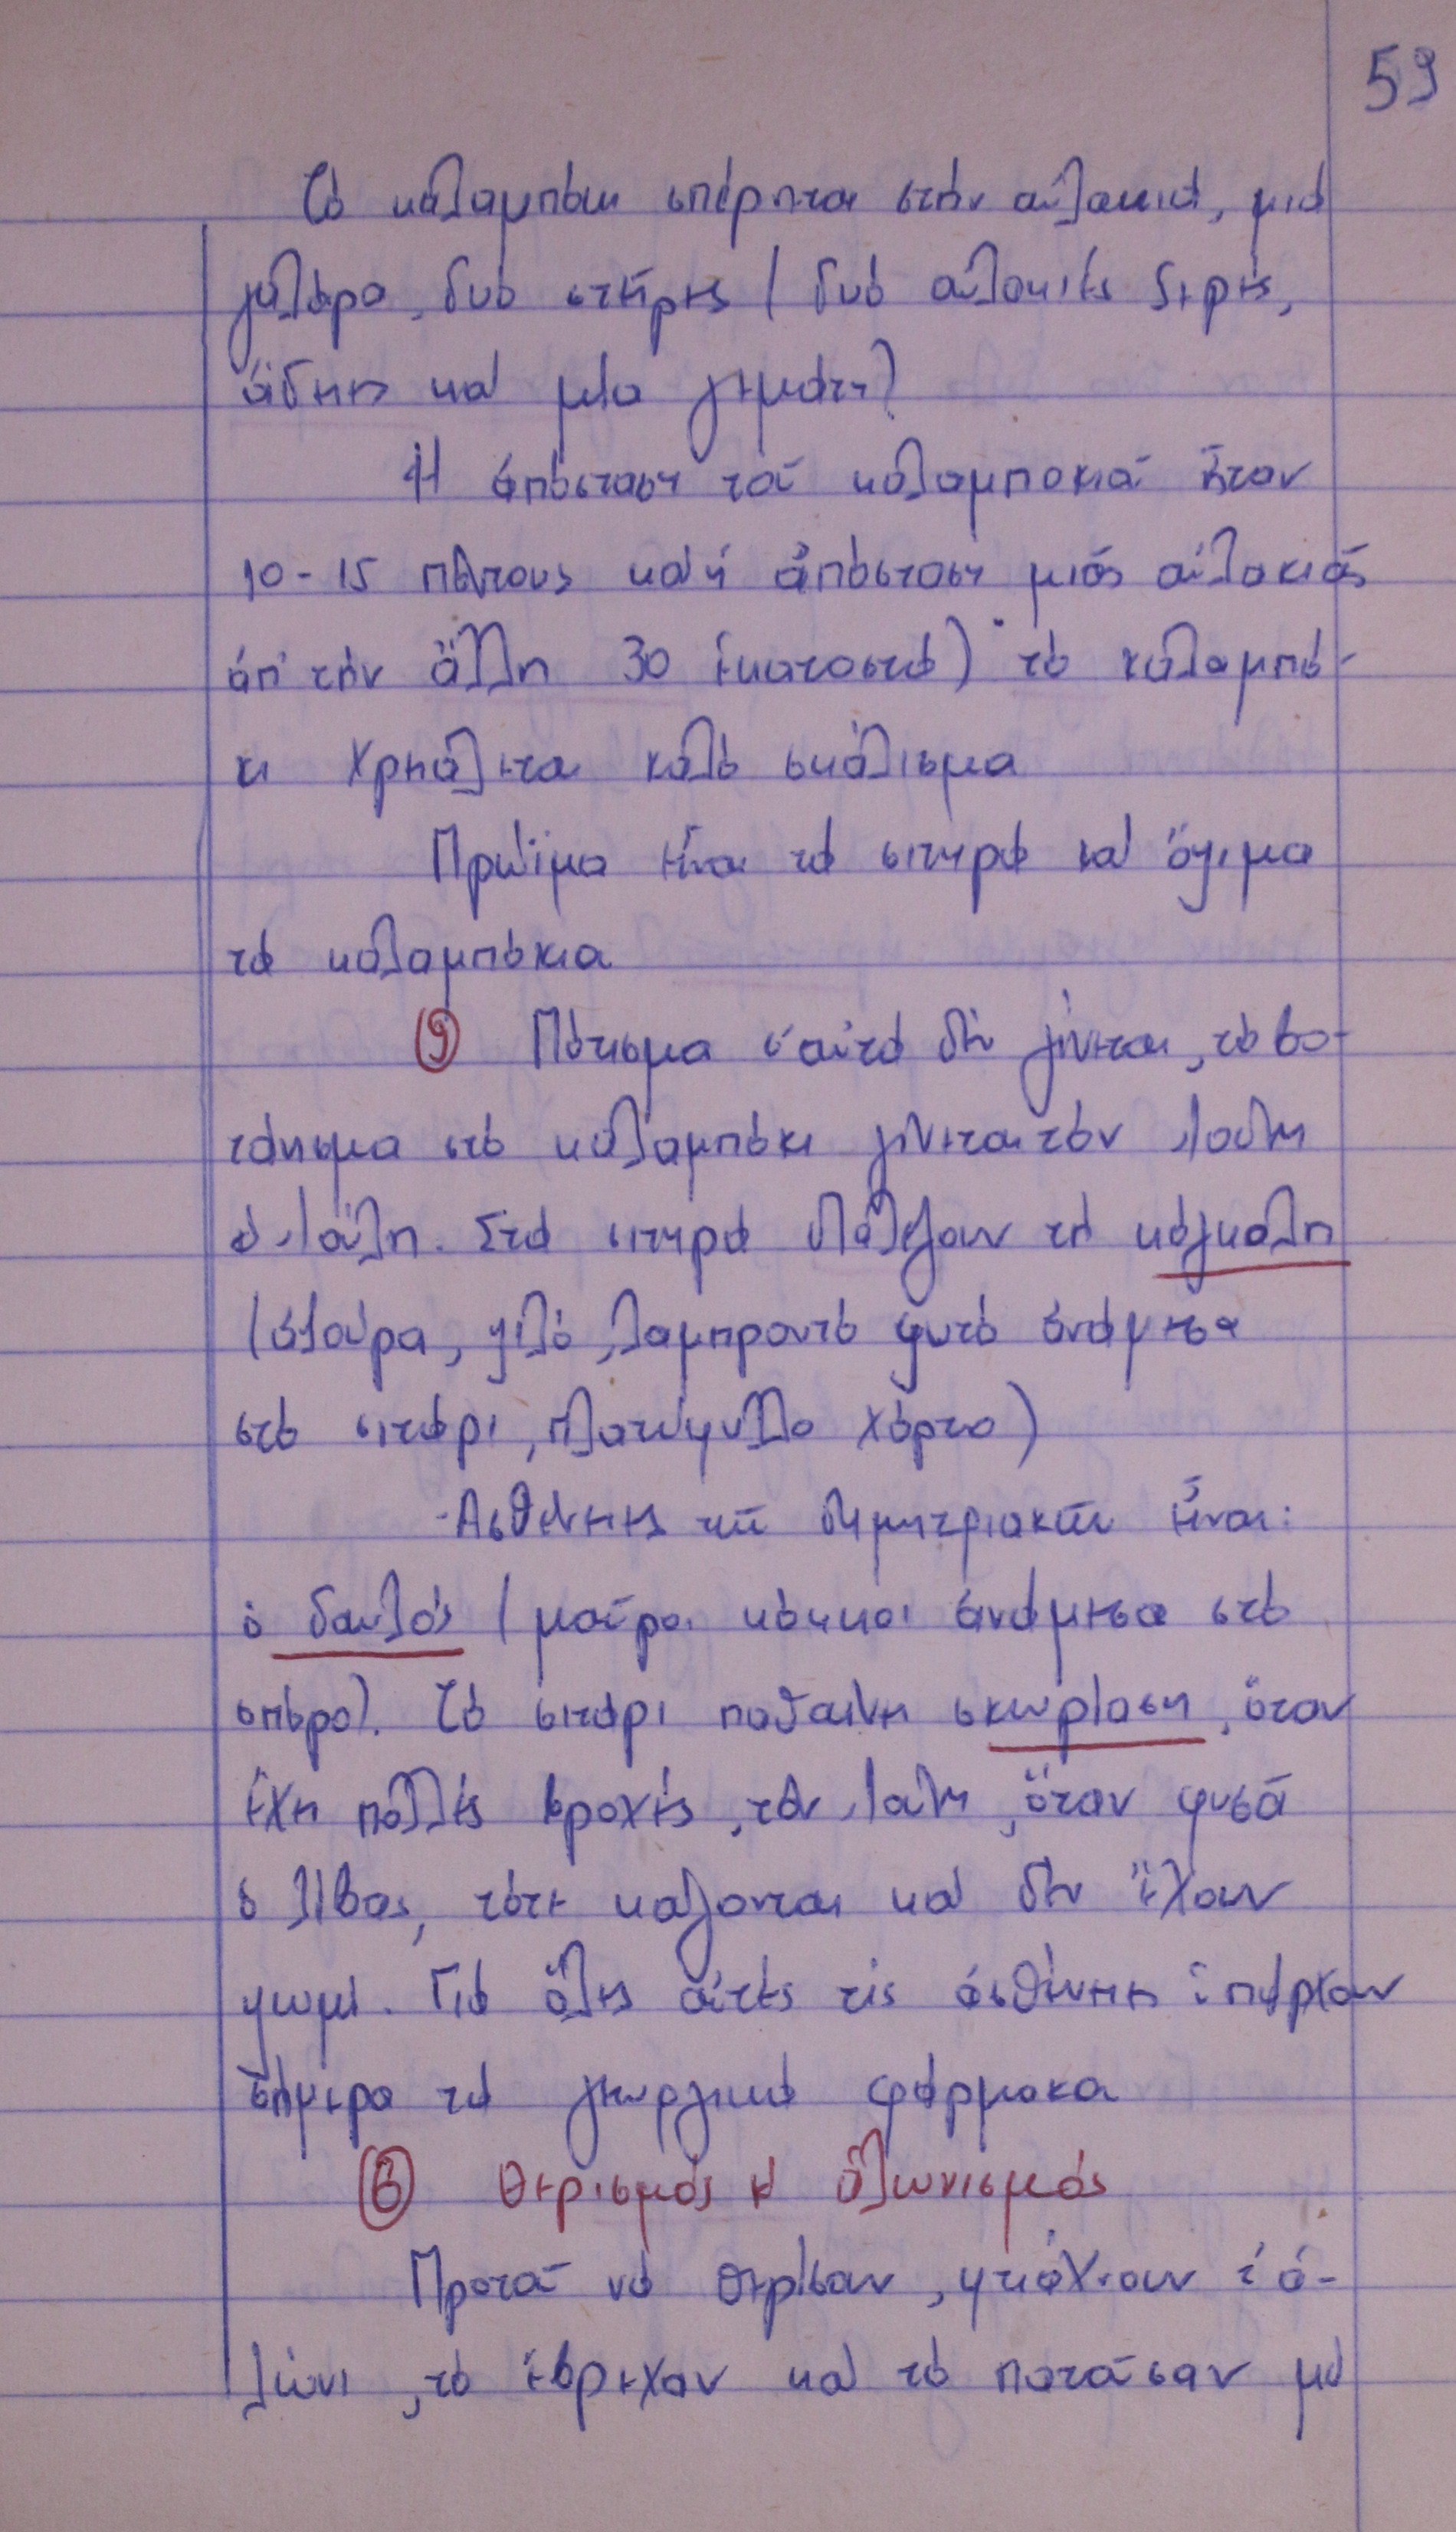 59
Τό καλαμπόκι σπέρνεται στήν αὐλακιά, μιά
γιόμα, δυό στέρφες (δυό αὐλακιές ξερές,
ἄδειες καί μία γεμάτη)
Ἡ ἀπόσταση τοῦ καλαμποκιοῦ ἦταν
10-15 πόντους καί ἡ ἀπόσταση μιᾶς αὐλακιᾶς
ἀπ' τήν ἄλλη 30 ἑκατοστά) τό καλαμπό-
κι χρειάζεται καλό σκάλισμα
Πρώϊμα εἶναι τά σιτηρά καί ὄψιμα
τά καλαμπόκια
Πότισμα σ' αὐτά δέν γίνεται, τό βο-
τάνισμα στό καλαμπόκι γίνεται τόν Ἰούνη
Ἰούλη. Στά σιτηρά βγάζουν τή κόλκαλη
ψιλό, λαμπρουτό φυτό ἀνάμεσα
στό σιτάρι, πλατύφυλλο χόρτο)
Ἀσθένειες τῶν δημητριακῶν εἶναι:
ὁ δαυλός (μαῦροι κόκκοι ἀνάμεσα στό
σπόρο). Τό σιτάρι παθαίνει σκωρίαση, ὅταν
ἔχει πολλές βροχές, τόν Ἰούνη, ὅταν φυσᾶ
ὁ λίβας, τότε καίγονται καί δέν ἔχουν
ψωμί. Γιά ὅλες αὐτές τίς ἀσθένειες ὑπάρχουν
σήμερα τά γεωργικά φάρμακα
⑥ Θερισμός κ' ἁλωνισμός
Προτοῦ νά θερίσουν, φτιάχνουν τ' ἀ-
λώνι, τό ἔβρεχαν καί τό πατοῦσαν μέ